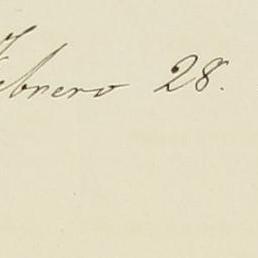 Febrero 28.